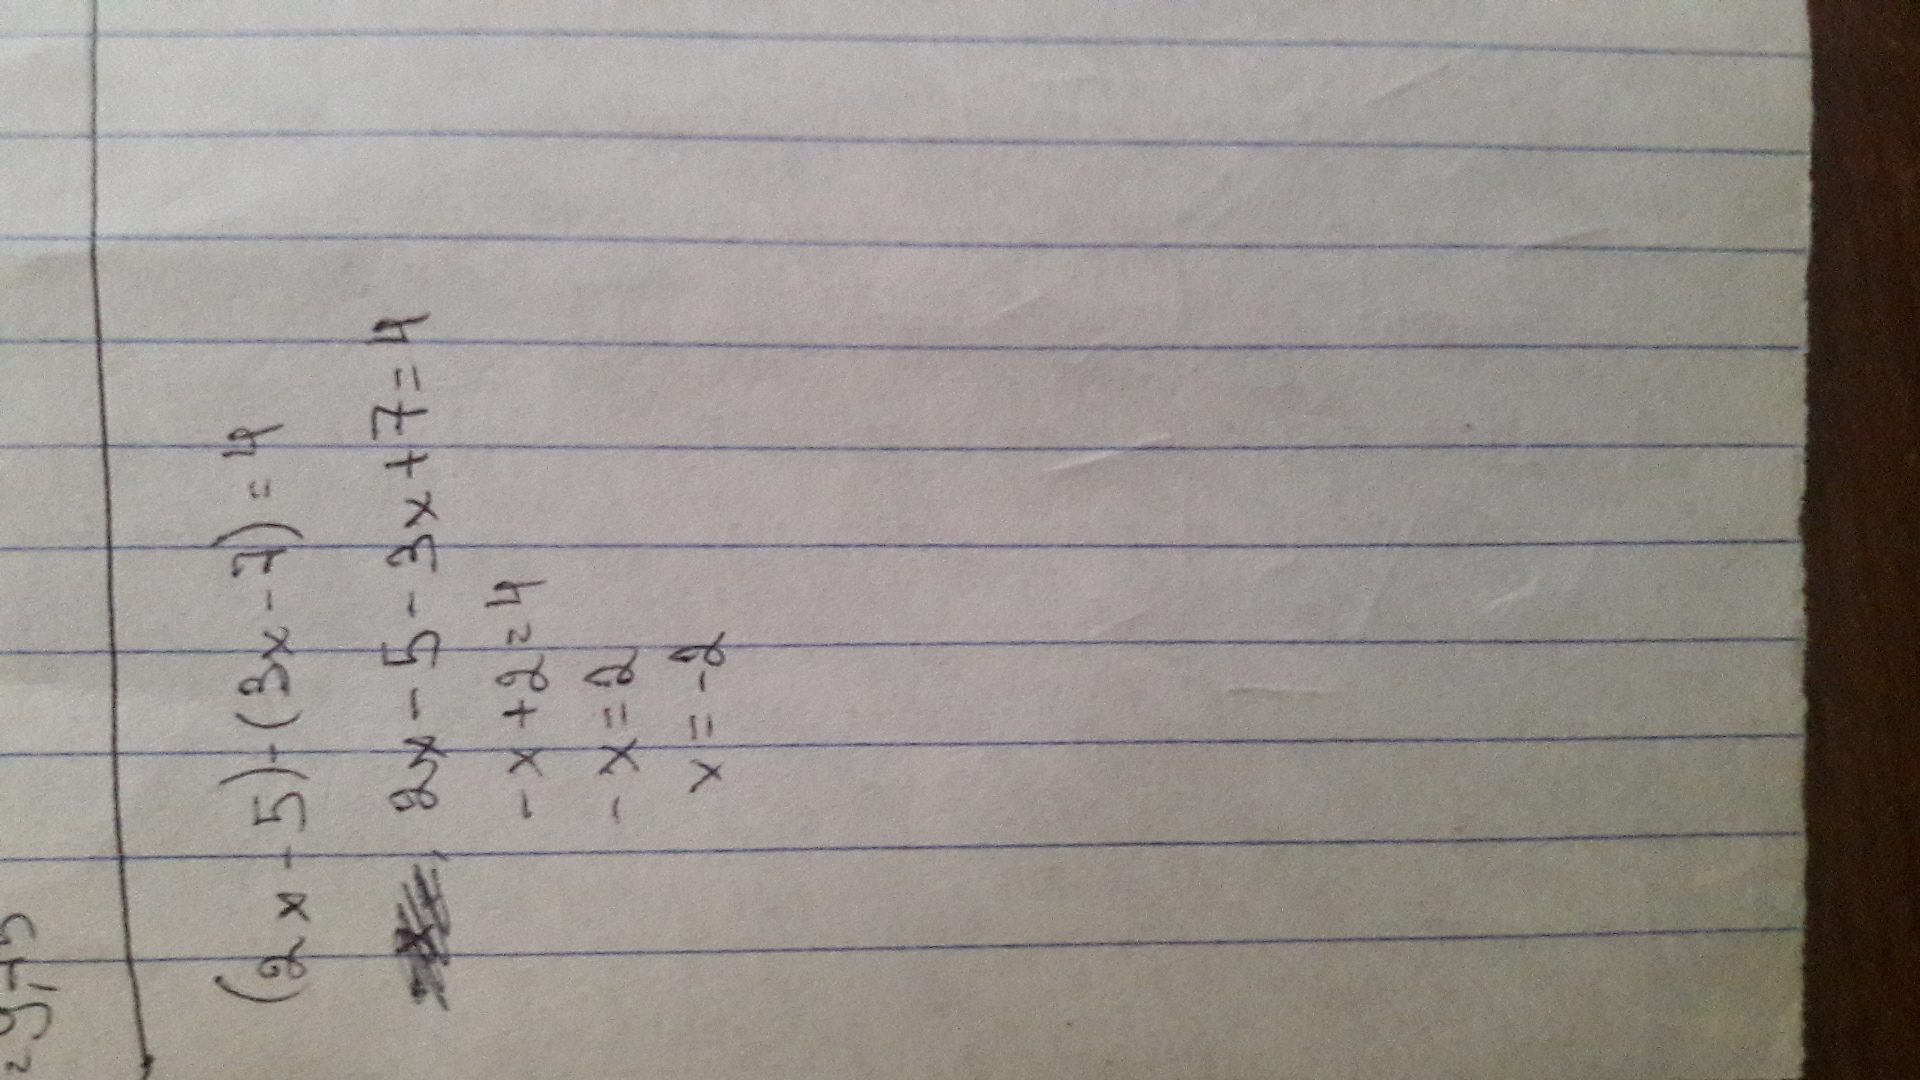 (2x-5)-(3x-7)=4
2x-5-3x+7=4
-x+2=4
-x=2
x=-2